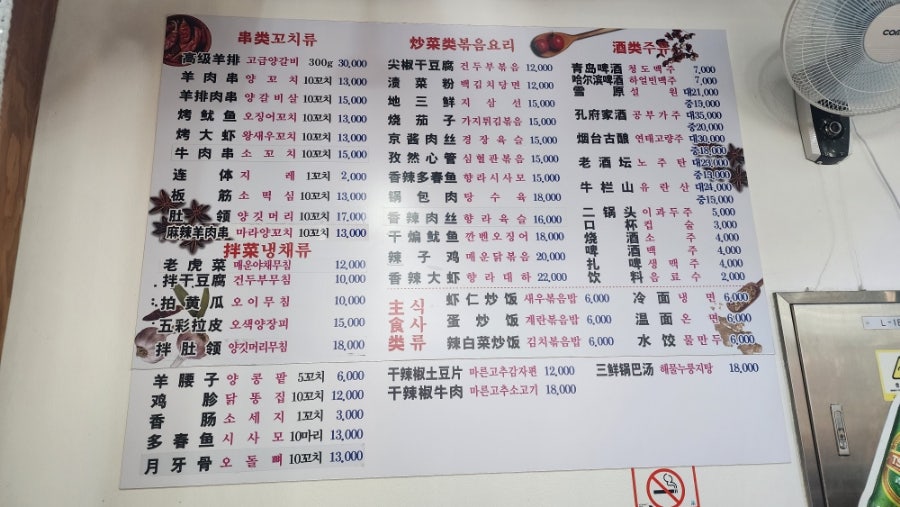 串类꼬치류
高级羊排 고급양갈비 300g 30,000
羊肉串 양꼬치 10꼬치 13,000
羊排肉串 양갈비살 10꼬치 15,000
烤鱿鱼 오징어꼬치 10꼬치 13,000
烤大虾 왕새우꼬치 10꼬치 13,000
牛肉串 소꼬치 10꼬치 15,000
连体 지레 1꼬치 2,000
板筋 소떡심 10꼬치 13,000
肚领 양깃머리 10꼬치 17,000
麻辣羊肉串 마라양꼬치 10꼬치 13,000
拌菜냉채류
老虎菜 매운야채무침 12,000
拌干豆腐 건두부무침 10,000
拍黄瓜 오이무침 10,000
五彩拉皮 오색양장피 15,000
拌肚领 양깃머리무침 18,000
羊腰子 양콩팥 5꼬치 6,000
鸡胗 닭똥집 10꼬치 12,000
香肠 소세지 1꼬치 3,000
多春鱼 시사모 10마리 13,000
月牙骨 오돌뼈 10꼬치 13,000
炒菜类볶음요리
尖椒干豆腐 건두부볶음 12,000
渍菜粉 백김치당면 12,000
地三鲜 지삼선 15,000
烧茄子 가지튀김볶음 15,000
京酱肉丝 경장육슬 15,000
孜然心管 심혈관볶음 15,000
香辣多春鱼 향라시사모 15,000
锅包肉 탕수육 18,000
香辣肉丝 향라육슬 16,000
干煸鱿鱼 깐벤오징어 18,000
辣子鸡 매운닭볶음 20,000
香辣大虾 향라대하 22,000
主食类 식사류
虾仁炒饭 새우볶음밥 6,000
蛋炒饭 계란볶음밥 6,000
辣白菜炒饭 김치볶음밥 6,000
冷面 냉면 6,000
温面 온면 6,000
水饺 물만두 6,000
干辣椒土豆片 마른고추감자편 12,000
干辣椒牛肉 마른고추소고기 18,000
三鲜锅巴汤 해물누룽지탕 18,000
酒类주류
青岛啤酒 청도맥주 7,000
哈尔滨啤酒 하얼빈맥주 7,000
雪原 설원 대21,000
중19,000
孔府家酒 공부가주 대35,000
중20,000
烟台古酿 연태고량주 대30,000
중18,000
老酒坛 노주탄 대23,000
중13,000
牛栏山 유란산 대24,000
중15,000
二锅头 이과두주 5,000
口杯 컵술 3,000
烧酒 소주 4,000
啤酒 맥주 4,000
扎啤 생맥주 4,000
饮料 음료수 2,000